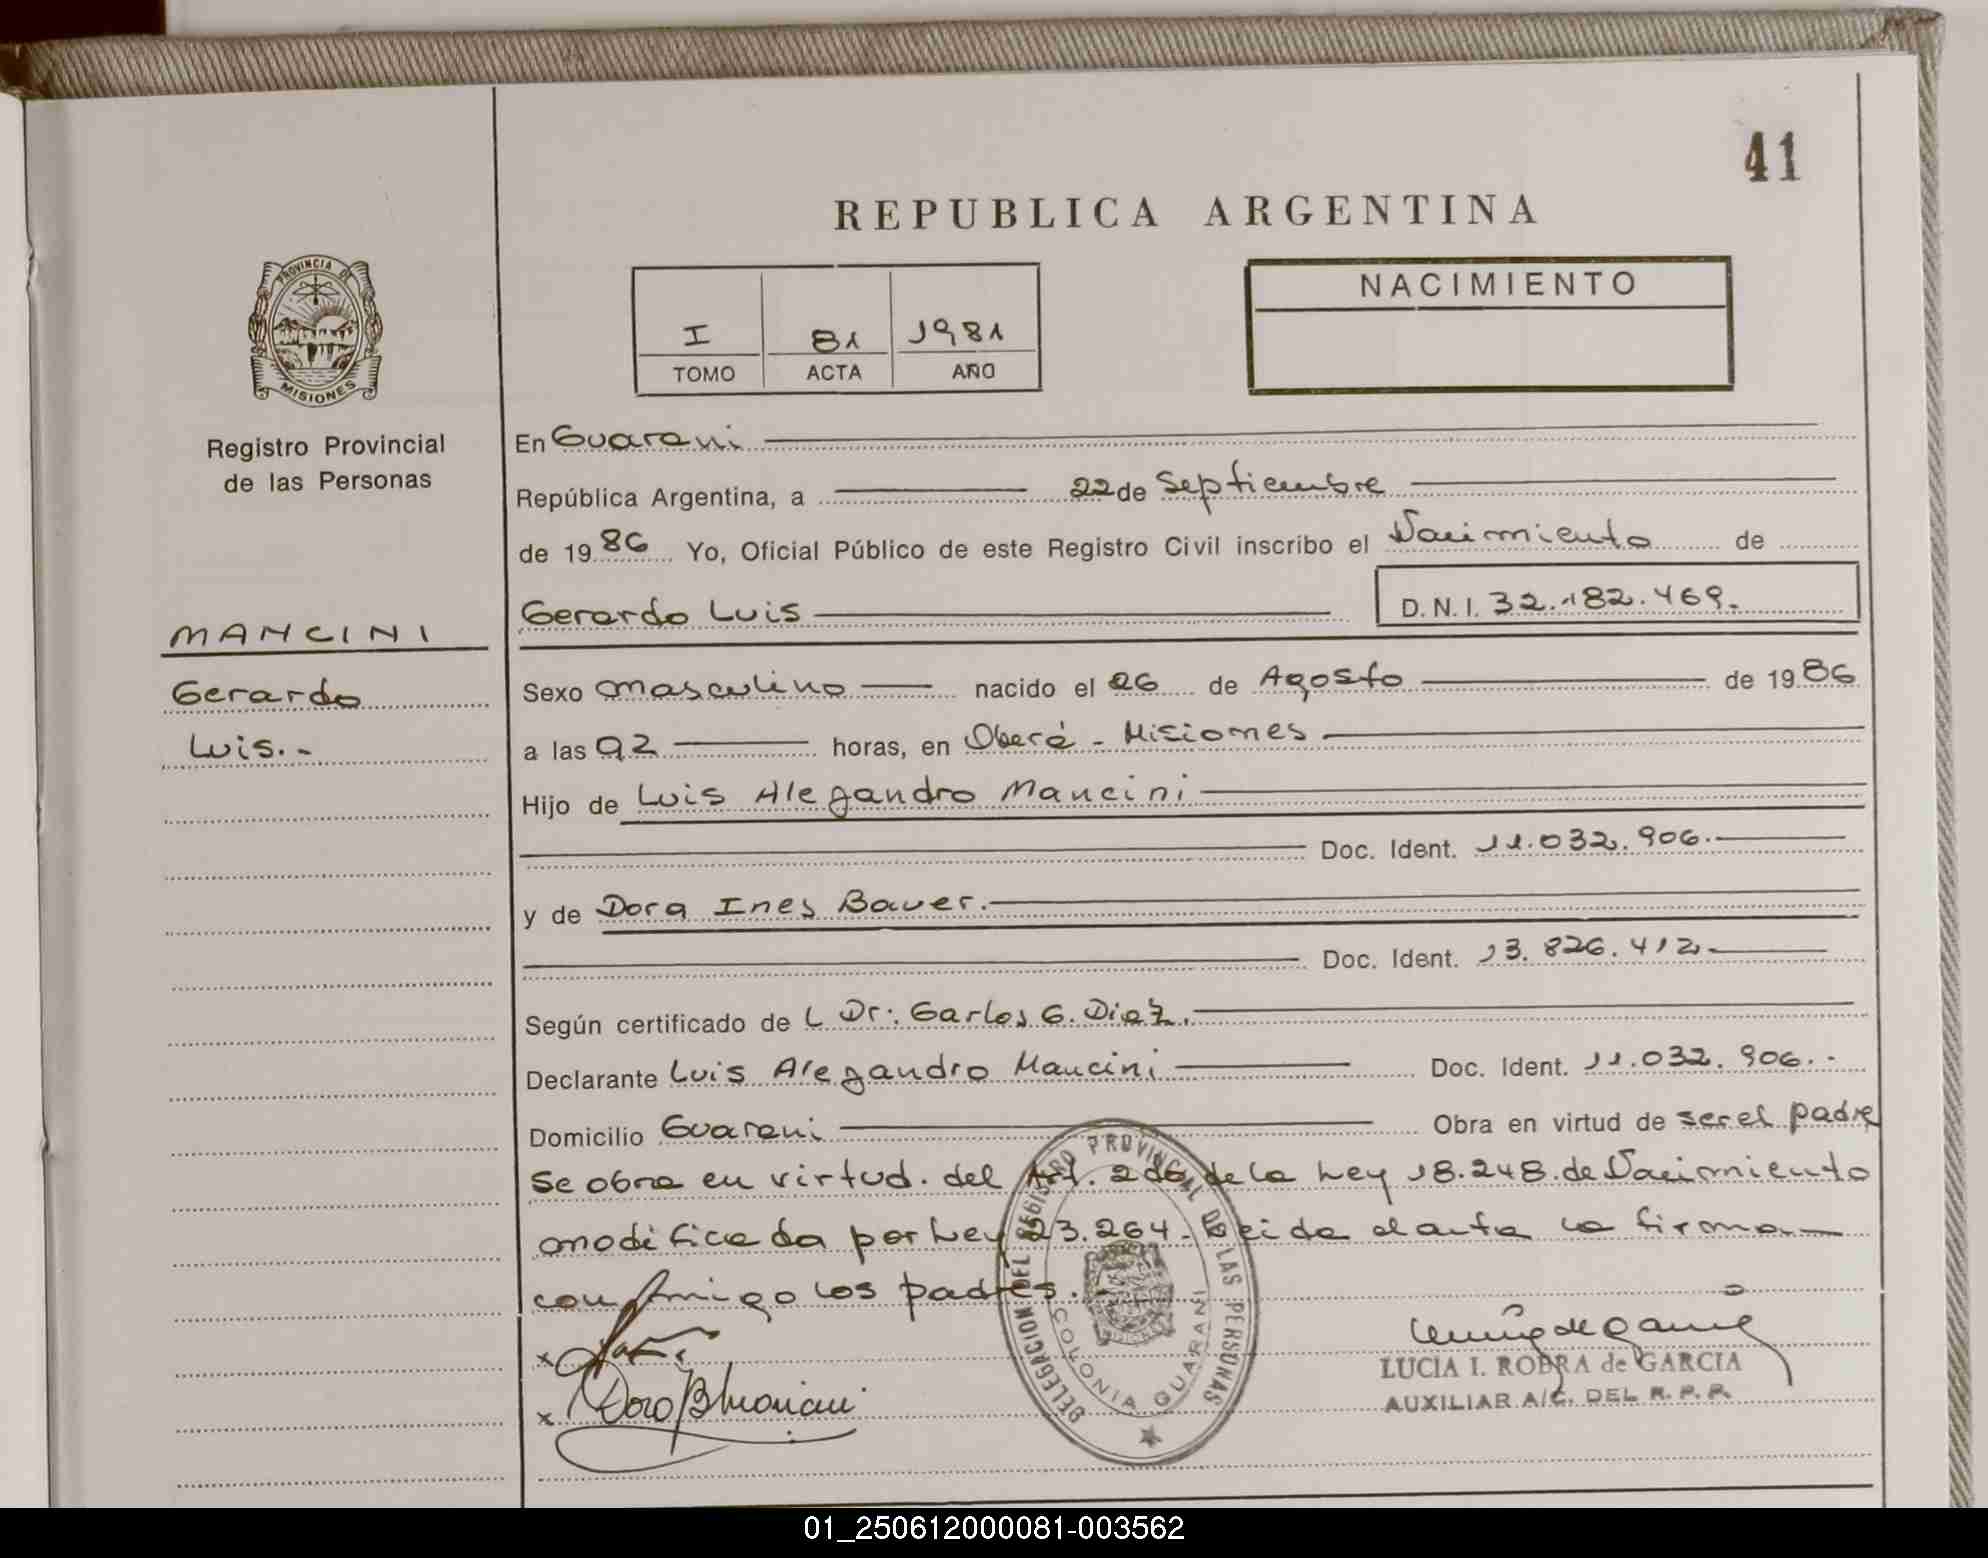 41
REPUBLICA ARGENTINA
PROVINCIA DE
MISIONES
Registro Provincial
de las Personas
I 81 1981
TOMO ACTA AÑO
NACIMIENTO
En Guarani
República Argentina, a 22 de Septiembre
de 1986 Yo, Oficial Público de este Registro Civil inscribo el Nacimiento de
Gerardo Luis D.N.I. 32.182.469.
MANCINI
Gerardo
Luis.-
Sexo masculino nacido el 26 de Agosto de 1986
a las 02 horas, en Oberá - Misiones
Hijo de Luis Alejandro Mancini
Doc. Ident. 11.032.906.
y de Dora Ines Bauer.
Doc. Ident. 13.826.412
Según certificado de L Dr: Carlos G. Diaz.
Declarante Luis Alejandro Mancini Doc. Ident. 11.032.906.-
Domicilio Guarani Obra en virtud de ser el padre
Se obra en virtud. del Art. 2do de la Ley 18.248. de Nacimiento
modificada por Ley 23.264. Leida el acta la firman
conmigo los padres.
DELEGACION DEL REGISTRO PROVINCIAL DE LAS PERSONAS
COLONIA GUARANI
LUCIA I. ROBRA de GARCIA
AUXILIAR A/C. DEL R.P.P.
01_250612000081-003562